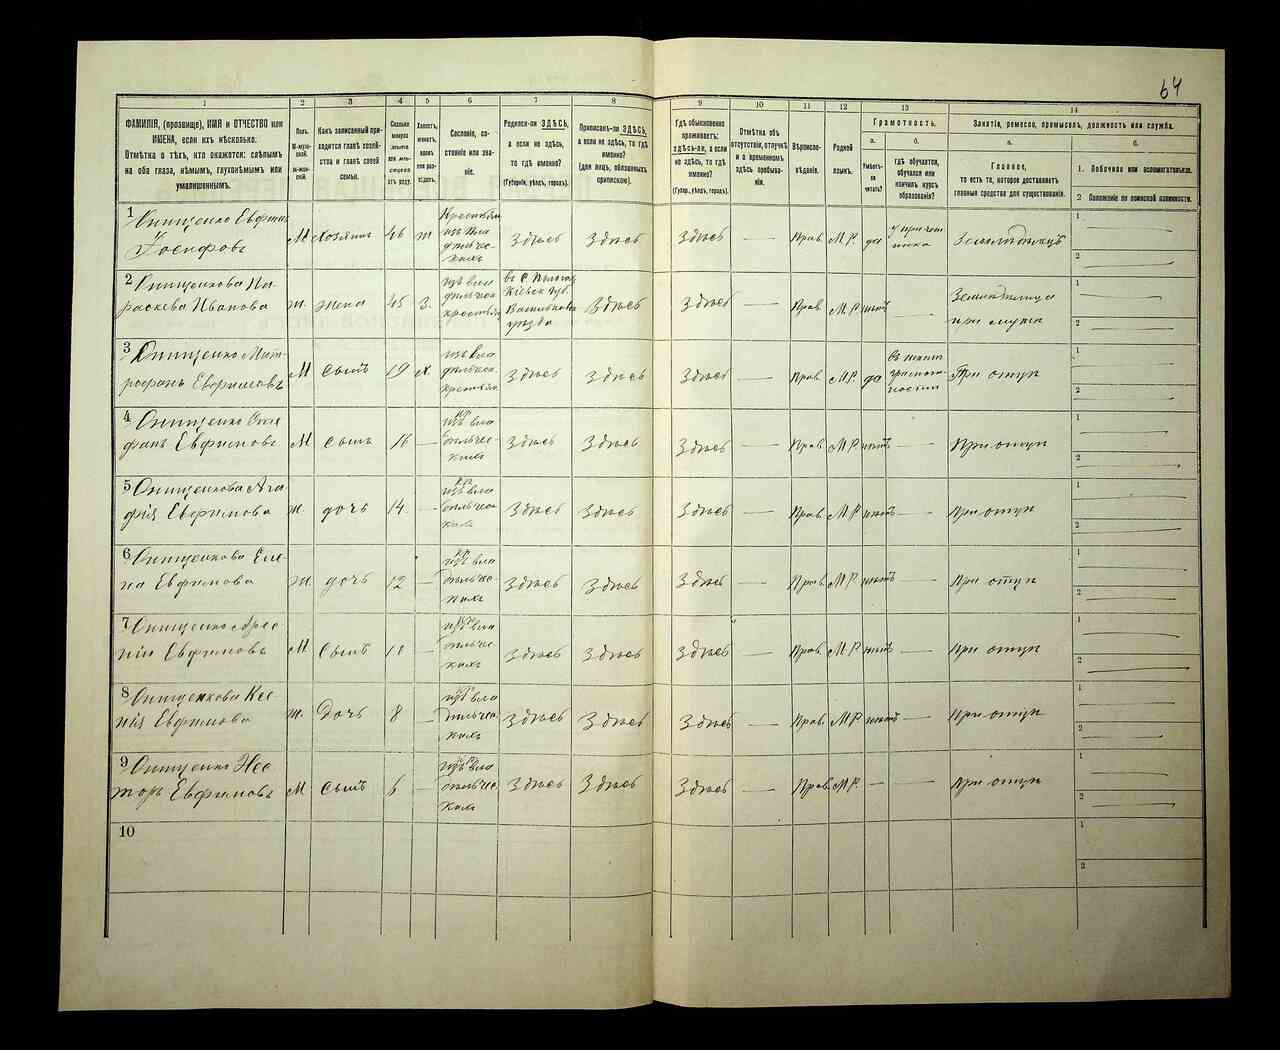 64
1 2 3 4 5 6 7 8 9 10 11 12 13 14
ФАМИЛІЯ, (прозвище), ИМЯ и ОТЧЕСТВО или
ИМЕНА, если ихъ нѣсколько.
Отмѣтка о тѣхъ, кто окажется: слѣпымъ
на оба глаза, нѣмымъ, глухонѣмымъ или
умалишеннымъ.
Полъ.
М-муж-
ской.
Ж-жен-
ской.
Какъ записанный при-
ходится главѣ хозяй-
ства и главѣ своей
семьи.
Сословіе, со-
стояніе или зва-
ніе.
Родился-ли ЗДѢСЬ,
а если не здѣсь,
то гдѣ именно?
(Губернія, уѣздъ, городъ).
Приписанъ-ли ЗДѢСЬ,
а если не здѣсь, то гдѣ
именно?
(для лицъ, обязанныхъ
припискою).
Гдѣ обыкновенно
проживаетъ:
здѣсь-ли, а если
не здѣсь, то гдѣ
именно?
(Губер., уѣздъ, городъ).
Отмѣтка объ
отсутствіи, отлучкѣ
и о временномъ
здѣсь пребыва-
ніи.
Вѣроиспо-
вѣданіе.
Родной
языкъ.
Грамотность.
а.
Умѣетъ-
ли
читать?
б.
гдѣ обучается,
обучался или
кончилъ курсъ
образованія?
Занятіе, ремесло, промыселъ, должность или служба.
а.
Главное,
то есть то, которое доставляетъ
главныя средства для существованія.
б.
1. Побочное или вспомогательное.
2 Положеніе по воинской повинности.
1 Онищенко Евфим
Іосифовъ
М Хозяинъ 46 ж Крестьян
изъ вла
дѣльче-
скихъ
Здѣсь Здѣсь Здѣсь Прав. М.Р. да Земледѣлецъ
1
2
2 Онищенкова Па-
раскева Иванова
ж. жена 45 З. изъ вла
дѣльчес
крестьян
Кіевск. губ.
Васильковс
уѣзда
Здѣсь Здѣсь — Прав М.Р нѣтъ — Земледѣлица
при мужѣ
1
2
3 Онищенко Мит-
рофанъ Евфимовъ
М сынъ 19 х. изъ вла
дѣльчес.
крестьян
Здѣсь Здѣсь Здѣсь — Прав. М.Р. да
въ школ
грамотн-
ности
При отцѣ
1
2
4 Онищенко Сте
фанъ Евфимовъ
М сынъ 16 — кр
изъ вла
дѣльчес-
кихъ
Здѣсь Здѣсь Здѣсь — Прав М.Р. нѣтъ — При отцѣ
1
2
5 Онищенкова Ага
фія Евфимова
ж. дочь 14. — кр
изъ вла
дѣльчес-
ких
Здѣсь Здѣсь Здѣсь — Прав. М.Р нѣтъ — При отцѣ
1
2
6 Онищенкова Еле
на Евфимова
ж дочь 12 — кр
изъ вла
дѣльчес
кихъ
Здѣсь Здѣсь Здѣсь — Прав М.Р нѣтъ — При отцѣ
1
2
7 Онищенко Арсе
ній Евфимовъ
М Сынъ 11 — кр
изъ вла
дѣльчес
кихъ
Здѣсь Здѣсь Здѣсь — Прав. М Р нѣтъ — При отцѣ
1
2
8 Онищенкова Ксе
нія Евфимова
ж. Дочь 8 — кр
изъ вла
дѣльчес
кихъ
Здѣсь Здѣсь Здѣсь — Прав. М.Р нѣтъ — При отцѣ
1
2
9 Онищенко Нес
торъ Евфимовъ
М Сынъ 6 — кр
изъ вла
дѣльчес
ких
Здѣсь Здѣсь Здѣсь — Прав. М.Р. — — При отцѣ
1
2
10
1
2